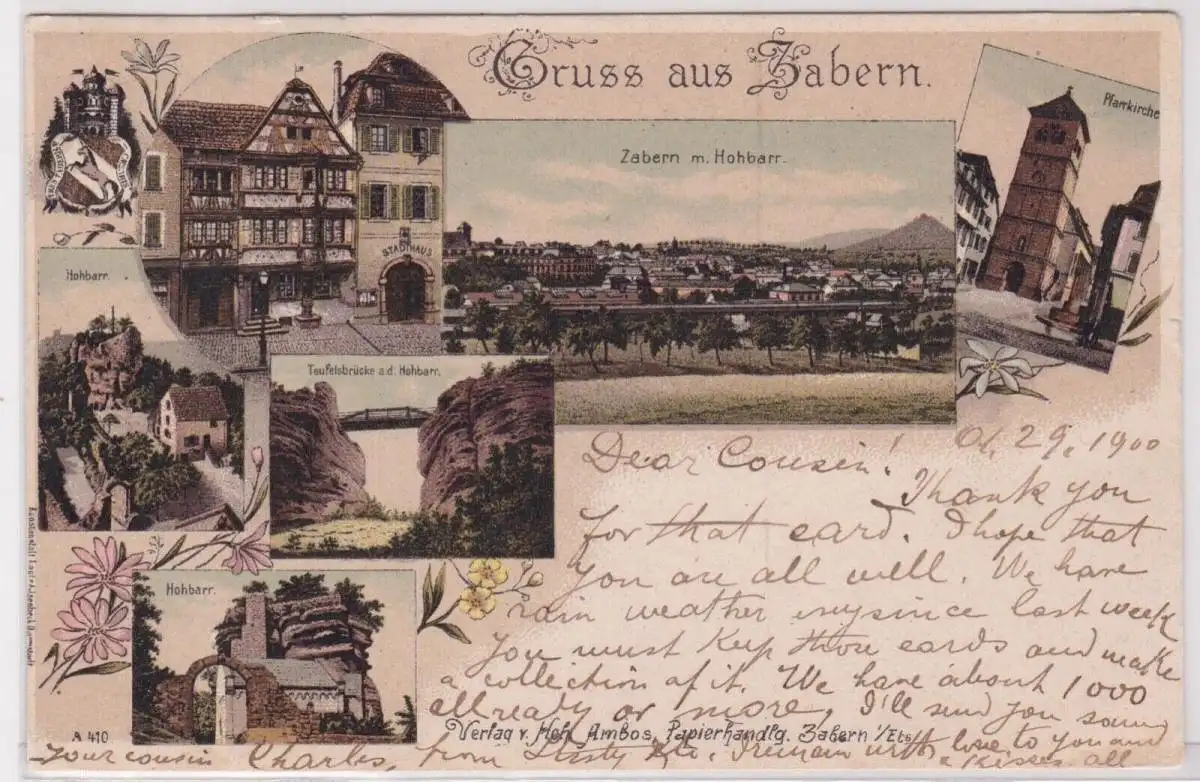 Gruss aus Zabern.
Pfarrkirche
Zabern m. Hohbarr.
STADTHAUS
Hohbarr.
Teufelsbrücke a.d. Hohbarr.
Hohbarr.
A 410
Verlag v. Hch. Ambos, Papierhandlg. Zabern i/Els
29, 1900
Dear Cousin!
Thank you
for that card. I hope that
you are all well. We have
rain weather since last week
You must Kup thou cards and make
a collection of it. We have about 1000
allready or more, I'll send you some
your cousin Charles, from I remain with love to you and
kisses all